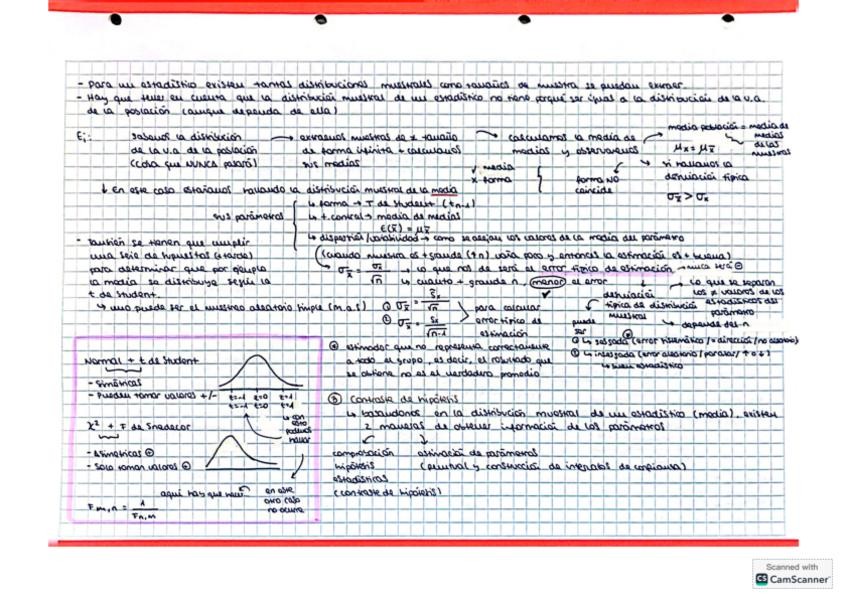 - Para un estadístico existen tantas distribuciones muestrales como tamaños de muestra se puedan extraer.
- Hay que tener en cuenta que la distribución muestral de un estadístico no tiene porqué ser igual a la distribución de la v.a.
de la población (aunque dependa de ella)
Ej: sabemos la distribución
de la v.a. de la población
(cosa que NUNCA pasará)
→ extraemos muestras de x tamaño
de forma infinita + calculamos
sus medias
→ calculamos la media de
medias y observamos
media población = media de
medias
de las
muestras
μx = μx̄
✓ media
x forma
forma NO
coincide
si hallamos la
desviación típica
σx̄ > σx
↓ En este caso estaríamos hallando la distribución muestral de la media
sus parámetros
↳ forma → T de Student (tn-1)
↳ t. central → media de medias
E(x̄) = μx̄
↳ dispersión/variabilidad → como se alejan los valores de la media del parámetro
(cuando muestra es + grande (↑n) varía poco y entonces la estimación es + buena)
- También se tienen que cumplir
una serie de supuestos (+ tarde)
para determinar que por ejemplo
la media se distribuye según la
t de Student.
↳ uno puede ser el muestreo aleatorio simple (m.a.s)
σx̄ = σx / √n → lo que nos da será el error típico de estimación → nunca será ⊖
↳ cuanto + grande n, menor el error
desviación
típica de distribución
muestral
→ lo que se separan
los ≠ valores de los
estadísticos del
parámetro
↳ depende del n
① σx̄ = / √n
② σx̄ = Sx / √n-1
para calcular
error típico de
estimación
puede
ser
① ↳ sesgada (error sistemático / = dirección / no aleatorio)
② ↳ insesgada (error aleatorio / para
↳ buen estadístico
estimador que no representa correctamente
a todo el grupo, es decir, el resultado que
se obtiene no es el verdadero promedio
Normal + t de Student
- Simétricas
- Pueden tomar valores +/-
z=-1 z=0 z=1
t=-1 t=0 t=1
↳ con
esto
podemos
hallar
χ² + F de Snedecor
- Asimétricas ⊕
- Solo toman valores ⊕
aquí hay que hacer
en este
otro caso
no ocurre
Fm,n = 1 / Fn,m
③ Contraste de hipótesis
↳ basándonos en la distribución muestral de un estadístico (media), existen
2 maneras de obtener información de los parámetros
comprobación
hipótesis
estadísticas
(contraste de hipótesis)
estimación de parámetros
(puntual y construcción de intervalos de confianza)
Scanned with
CS CamScanner